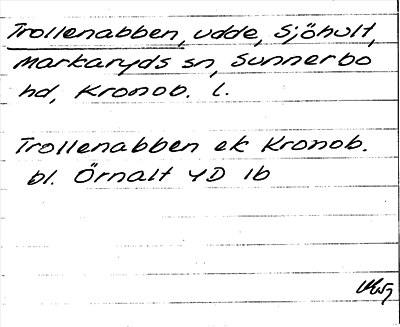 Trollenabben, udde, Sjöhult,
Markaryds sn, Sunnerbo
hd, Kronob. l.
Trollenabben ek Kronob.
bl. Örnalt 4D 1b